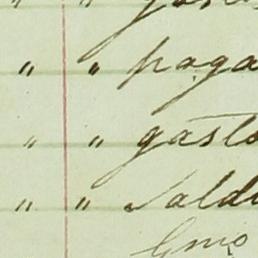 " "
" " paga
" " gasto
" " Sald
Gmo